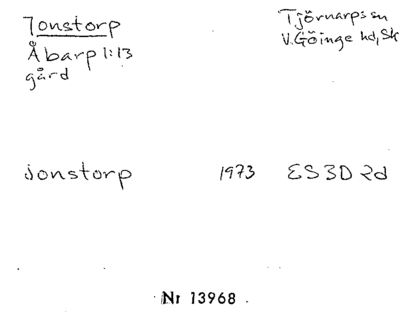 Jonstorp
Åbarp 1:13
gård
Tjörnarps sn
V. Göinge hd, Sk
jonstorp 1973 ES 3D 2d
Nr 13968